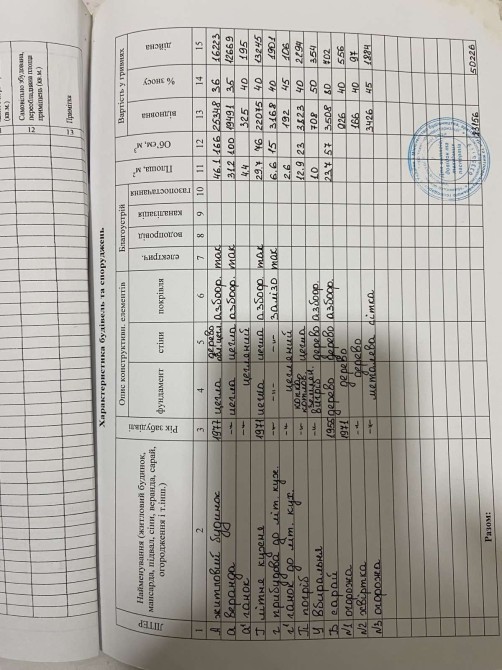 Самовільно збудована, переобладнана площа приміщень (кв.м.)
Примітка
12
13
Характеристика будівель та споруджень.
ЛІТЕР
Найменування (житловий будинок, мансарда, підвал, сіни, веранда, сарай, огородження і т.інш.)
Рік забудівлі
Опис конструктивн. елементів
фундамент
стіни
покрівля
Благоустрій
електрич.
водопровід
каналізація
газопостачання
Площа, м²
Об'єм, м³
Вартість у гривнях
відновна
% зносу
дійсна
1 2 3 4 5 6 7 8 9 10 11 12 13 14 15
А житловий будинок 1977 цегла дерево азбоф. так 46.1 166 25348 36 16223
а веранда -"- цегла цегла азбоф. так 31.2 100 19491 35 12669
а' ганок -"- цегляний 4.4 325 40 195
Г літня кухня 1971 цегла цегла азбоф. так 29.7 76 22075 40 13245
г прибудова до літ. кух. -"- -"- -"- залізо так 6.6 15 3168 40 1901
г' ганок до літ. кух. -"- цегляний 2.6 192 45 106
П погріб -"- цегла 12.9 23 40
У вбиральня -"- вигріб дерево азбоф. 1.0 708 50 354
В сарай 1955 дерево дерево азбоф. 23.7 57 3508 80 702
N1 огорожа 1971 дерево 926 40 556
N2 хвіртка -"- дерево 40 97
N3 огорожа -"- металева сітка 3426 45 1884
Разом:
50226